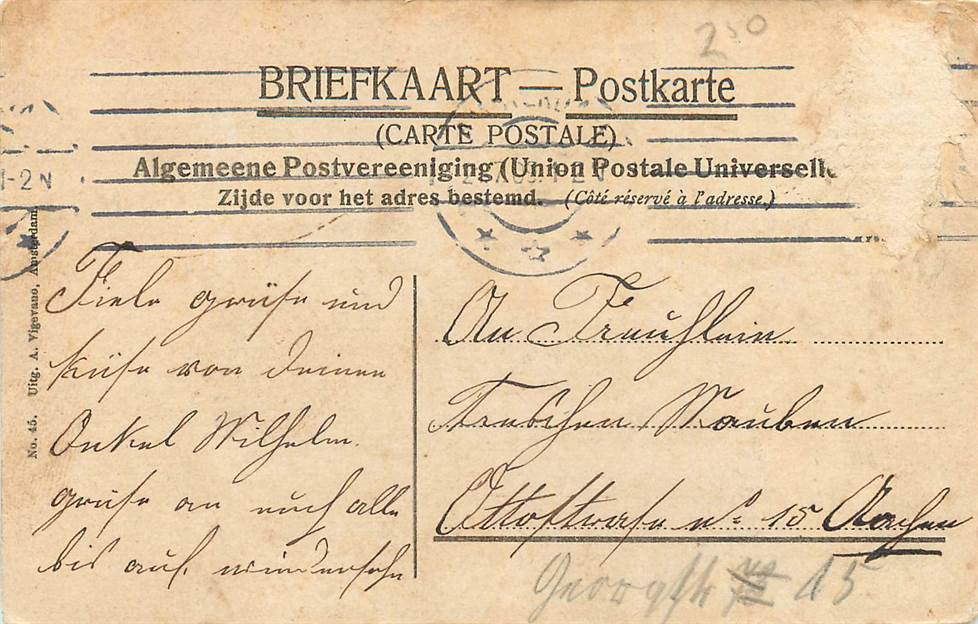 250
BRIEFKAART — Postkarte
(CARTE POSTALE)
Algemeene Postvereeniging (Union Postale Universelle
Zijde voor het adres bestemd. (Côté réservé à l'adresse.)
1-2N
No. 45. Uitg. A. Vigevano, Amsterdam
Fiele grüse und
küse von deinen
Onkel Wilhelm.
grüse an euch alle
bis auf wiedersehn
An Freuhlein
Treschen Mauben
Ottostrase no 15 Aachen
Georgstr 15